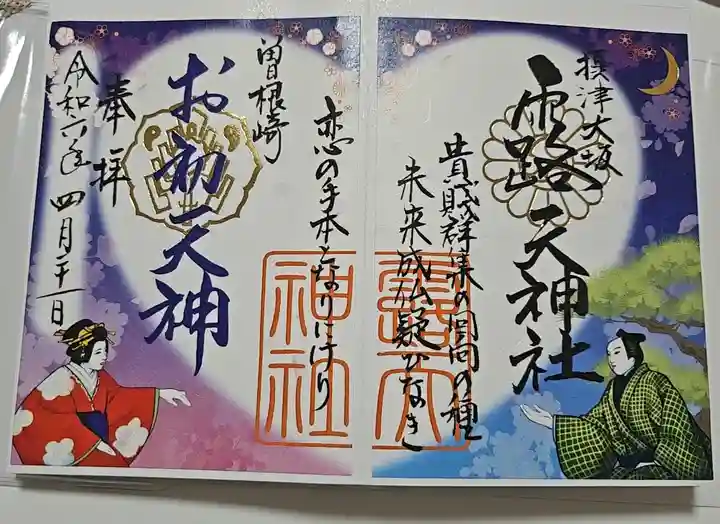 摂津大坂
露天神社
貴賤群集の回向の種
未来成仏疑ひなき
恋の手本となりにけり
曽根崎
お初天神
奉拝
令和六年四月二十一日
露天
神社